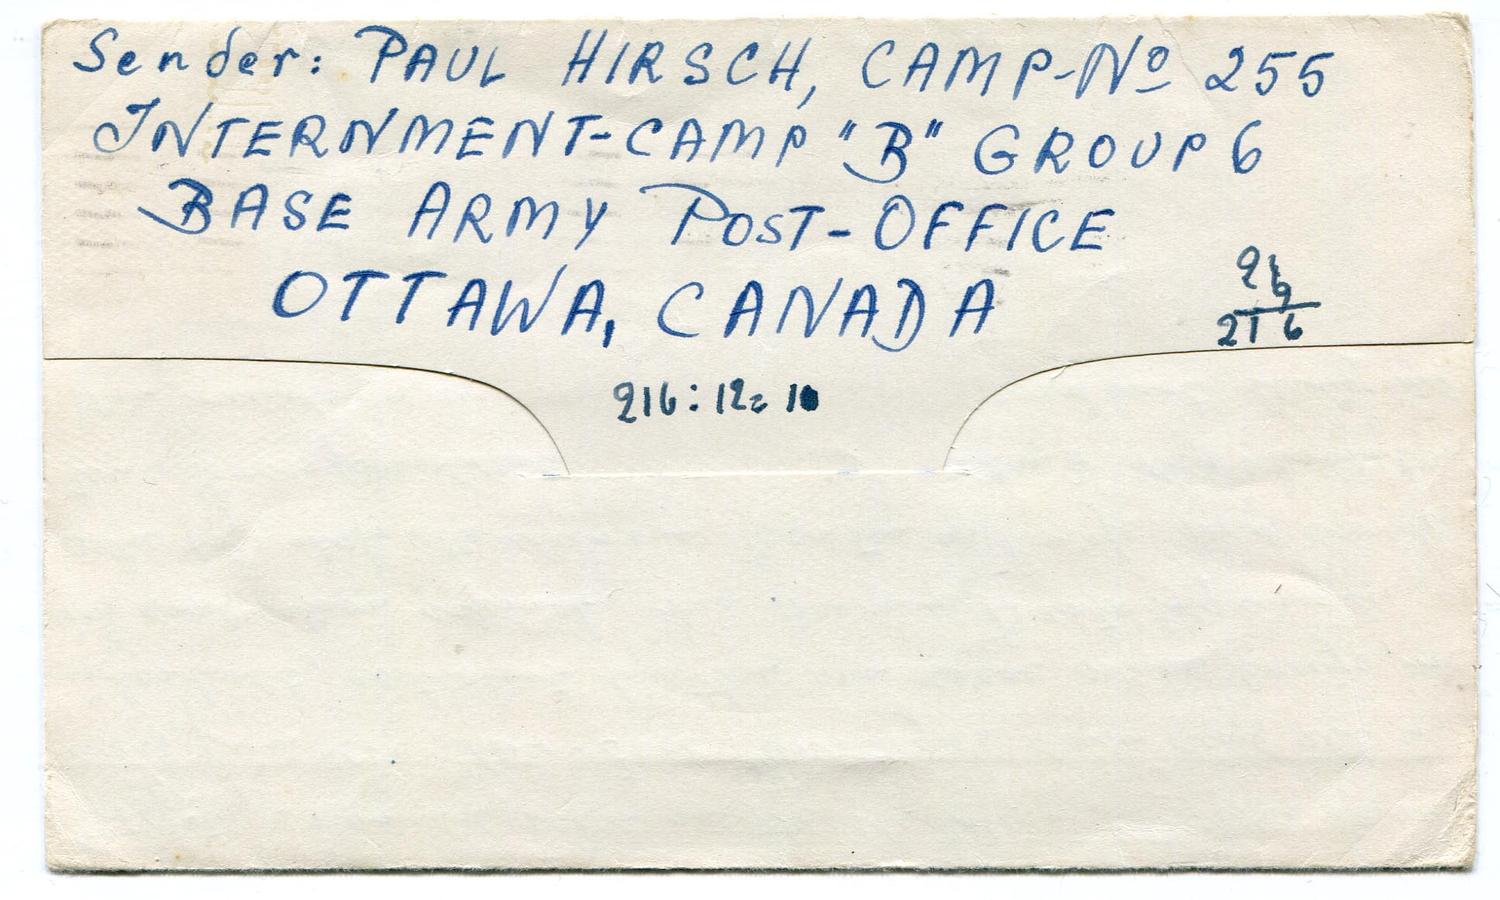 Sender: PAUL HIRSCH, CAMP-Nº 255
INTERNMENT-CAMP "B" GROUP 6
BASE ARMY POST-OFFICE
OTTAWA, CANADA
216
216:12=